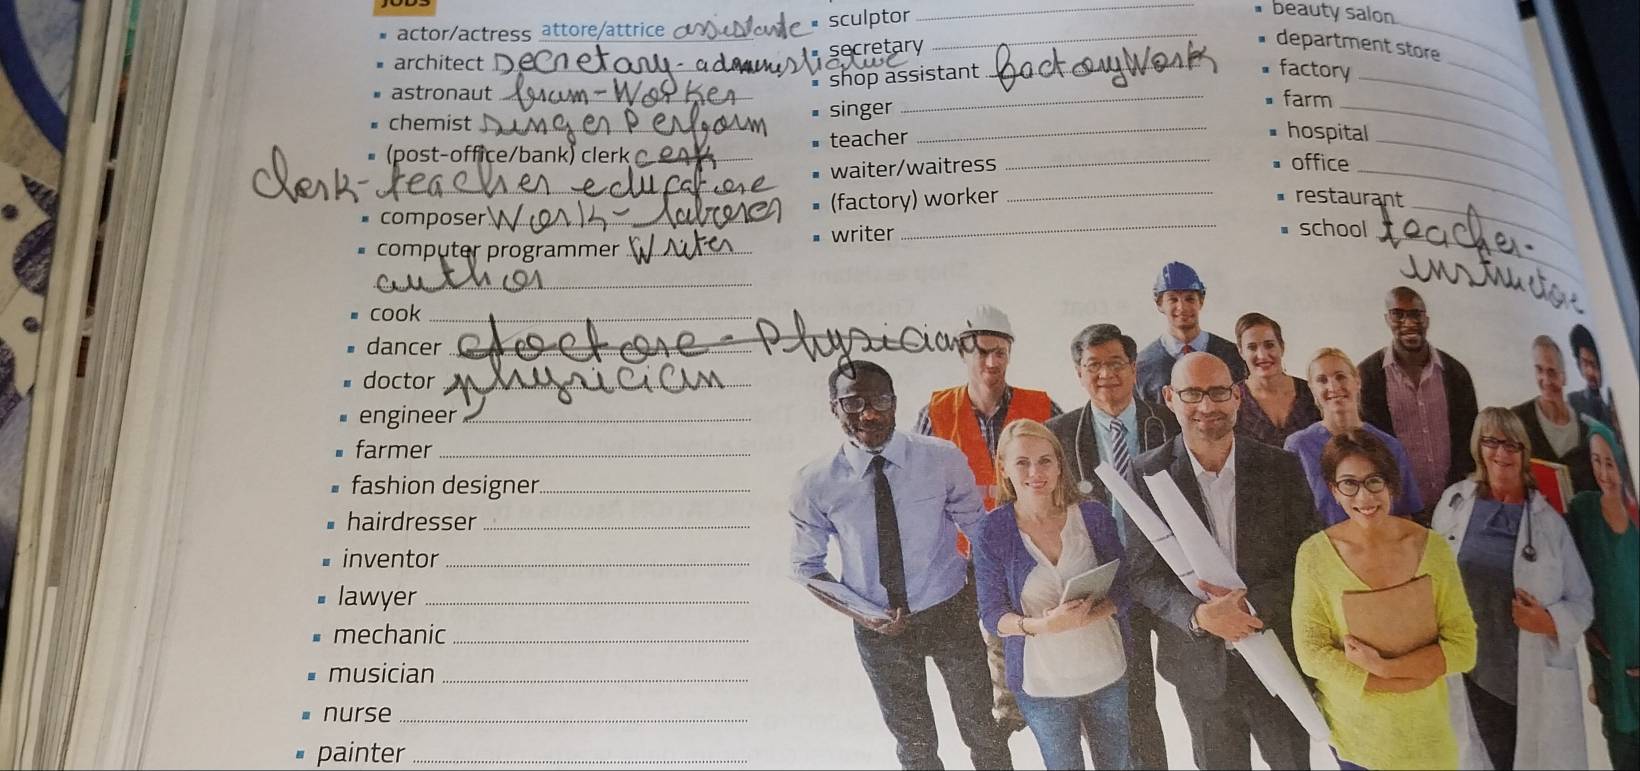 JOBS
actor/actress attore/attrice assistante
architect Decretary - administrative
astronaut farum-Worker
chemist Singer Perform
(post-office/bank) clerk cerk
Clerk- teacher educatore
composer Work - laborer
computer programmer Writer
author
cook
dancer doctore - Physician
doctor physician
engineer
farmer
fashion designer
hairdresser
inventor
lawyer
mechanic
musician
nurse
painter
sculptor
secretary
shop assistant factory Work
singer
teacher
waiter/waitress
(factory) worker
writer
beauty salon
department store
factory
farm
hospital
office
restaurant
school teacher-
instructore